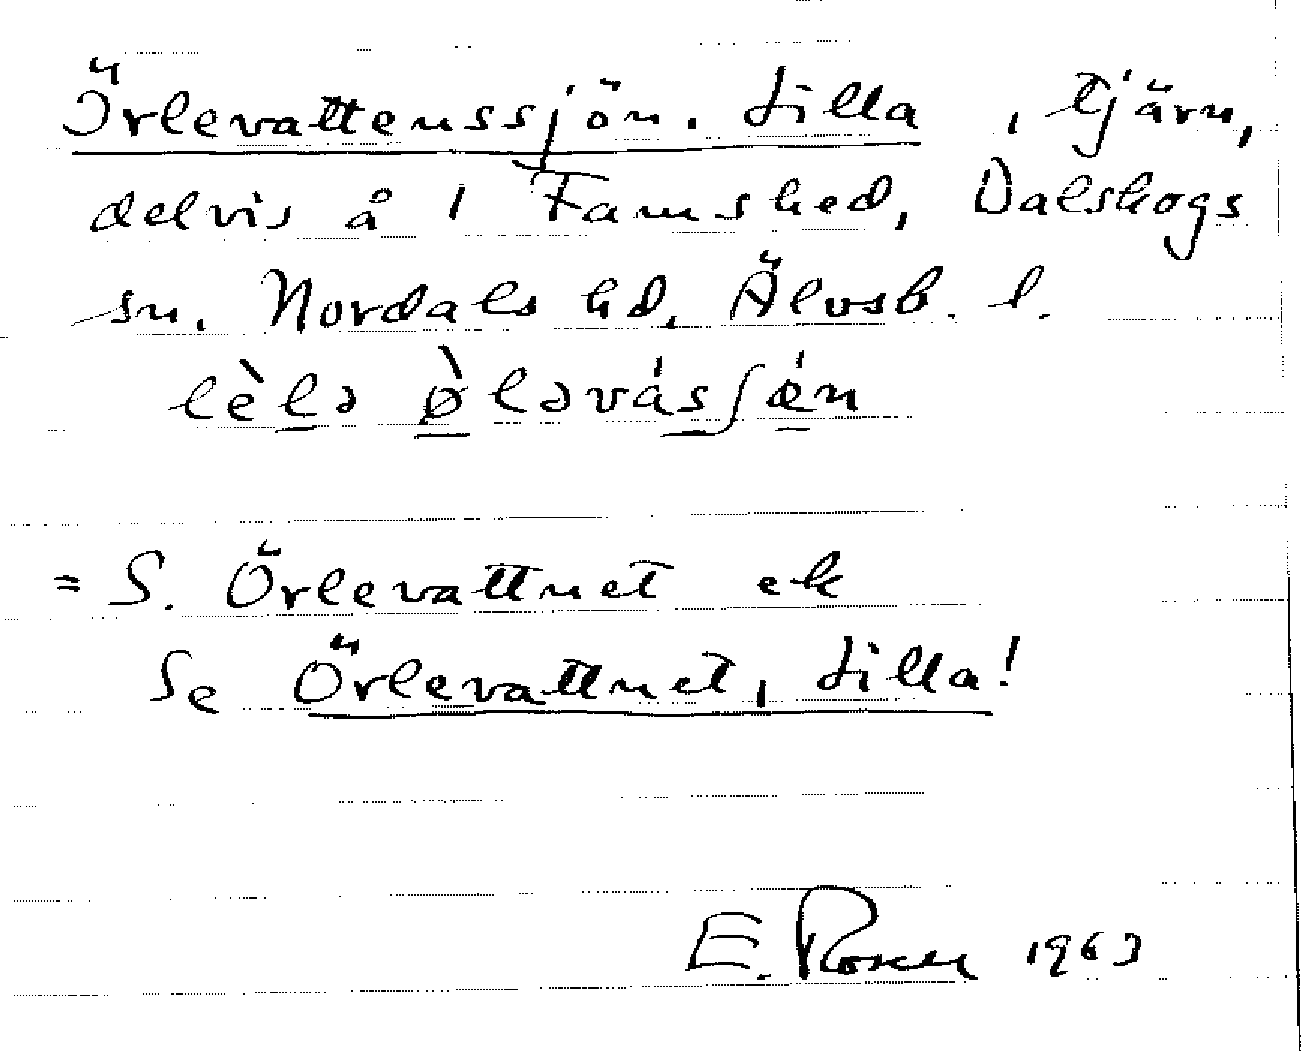 Örlevattenssjön. Lilla , tjärn,
delvis å i Famshed, Dalskogs
sn. Nordals hd. Älvsb. l.
lè̀lə ø̀ləvásʃǿn
= S. Örlevattnet ek
Se Örlevattnet, Lilla!
E. Rosen 1963